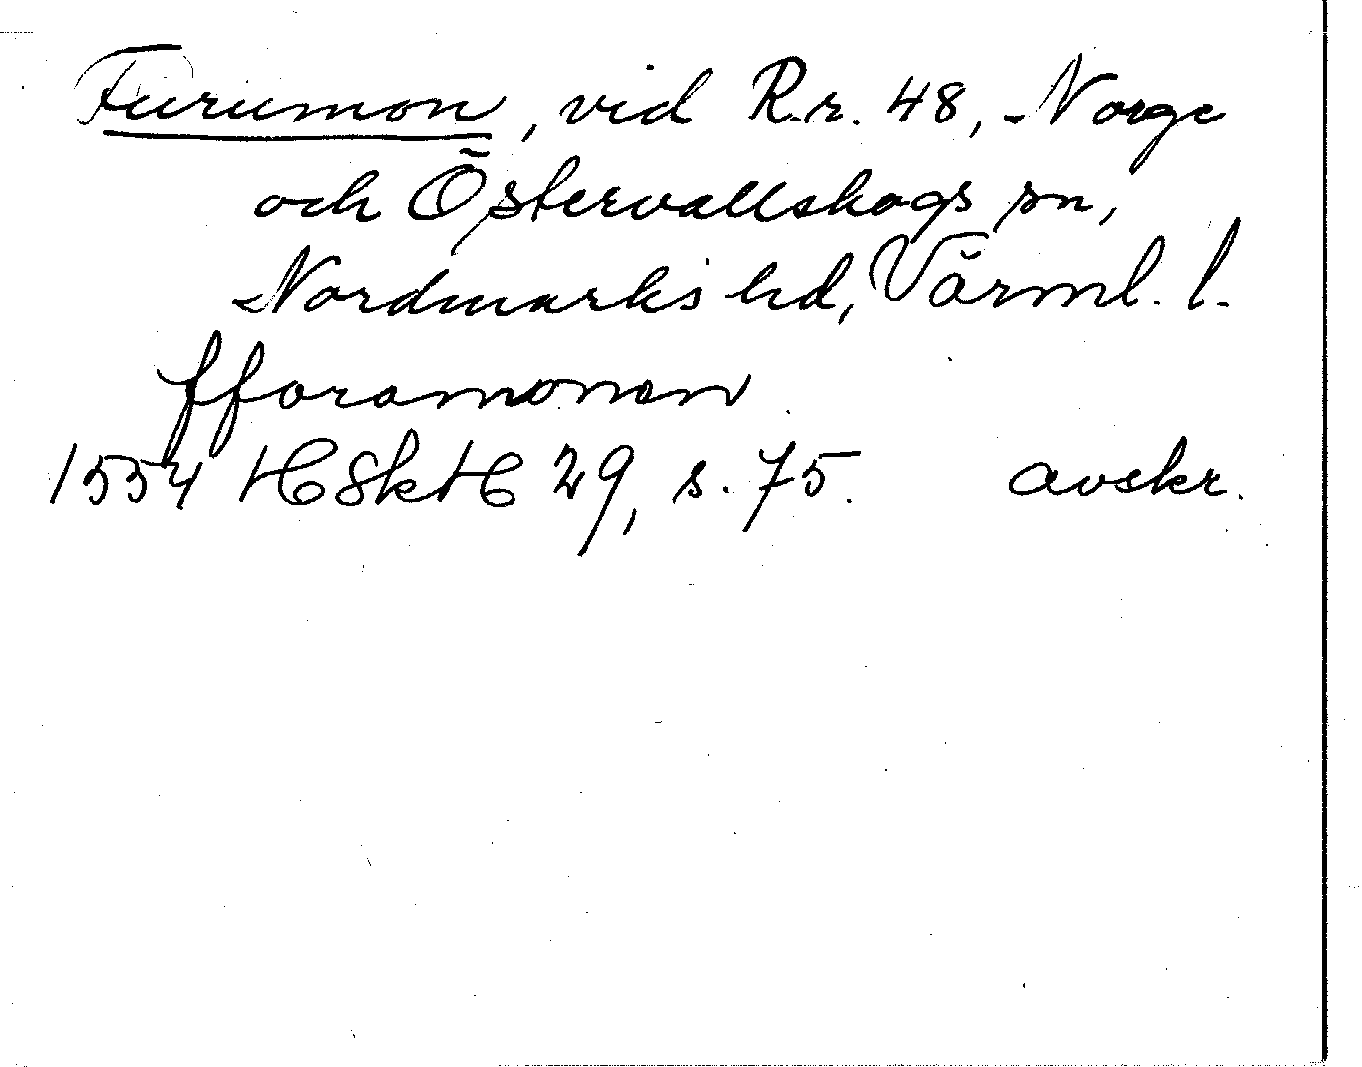 Furumon, vid R.r. 48, Norge
och Östervallskogs sn,
Nordmarks hd, Värml. l.
fforamonan
1554 HSkH 29, s. 75. avskr.